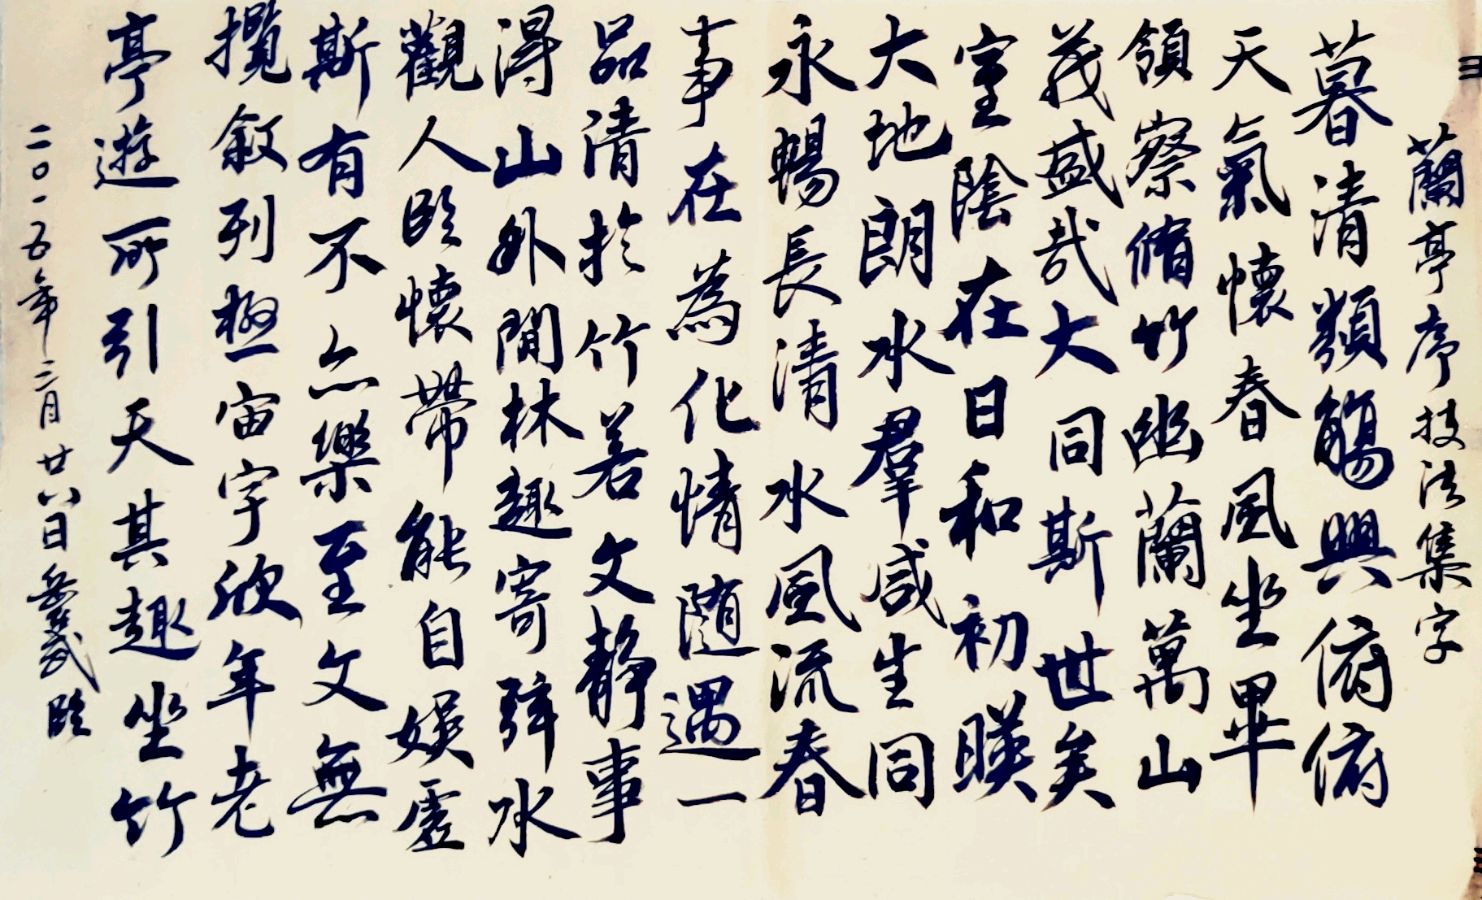 蘭亭序技法集字
暮清類觴興俯俯
天氣懷春風坐畢
領察脩竹幽蘭萬山
茂盛哉大同斯世矣
室陰在日和初暎
大地朗水群咸生同
永暢長清水風流春
事在為化情隨遇一
品清於竹若文靜事
得山外閒林趣寄絃水
觀人臨懷帶能自娛虛
斯有不亦樂至文無
攬敘列極宙宇欣年老
亭遊所引天其趣坐竹
二〇一五年二月廿八日 臨